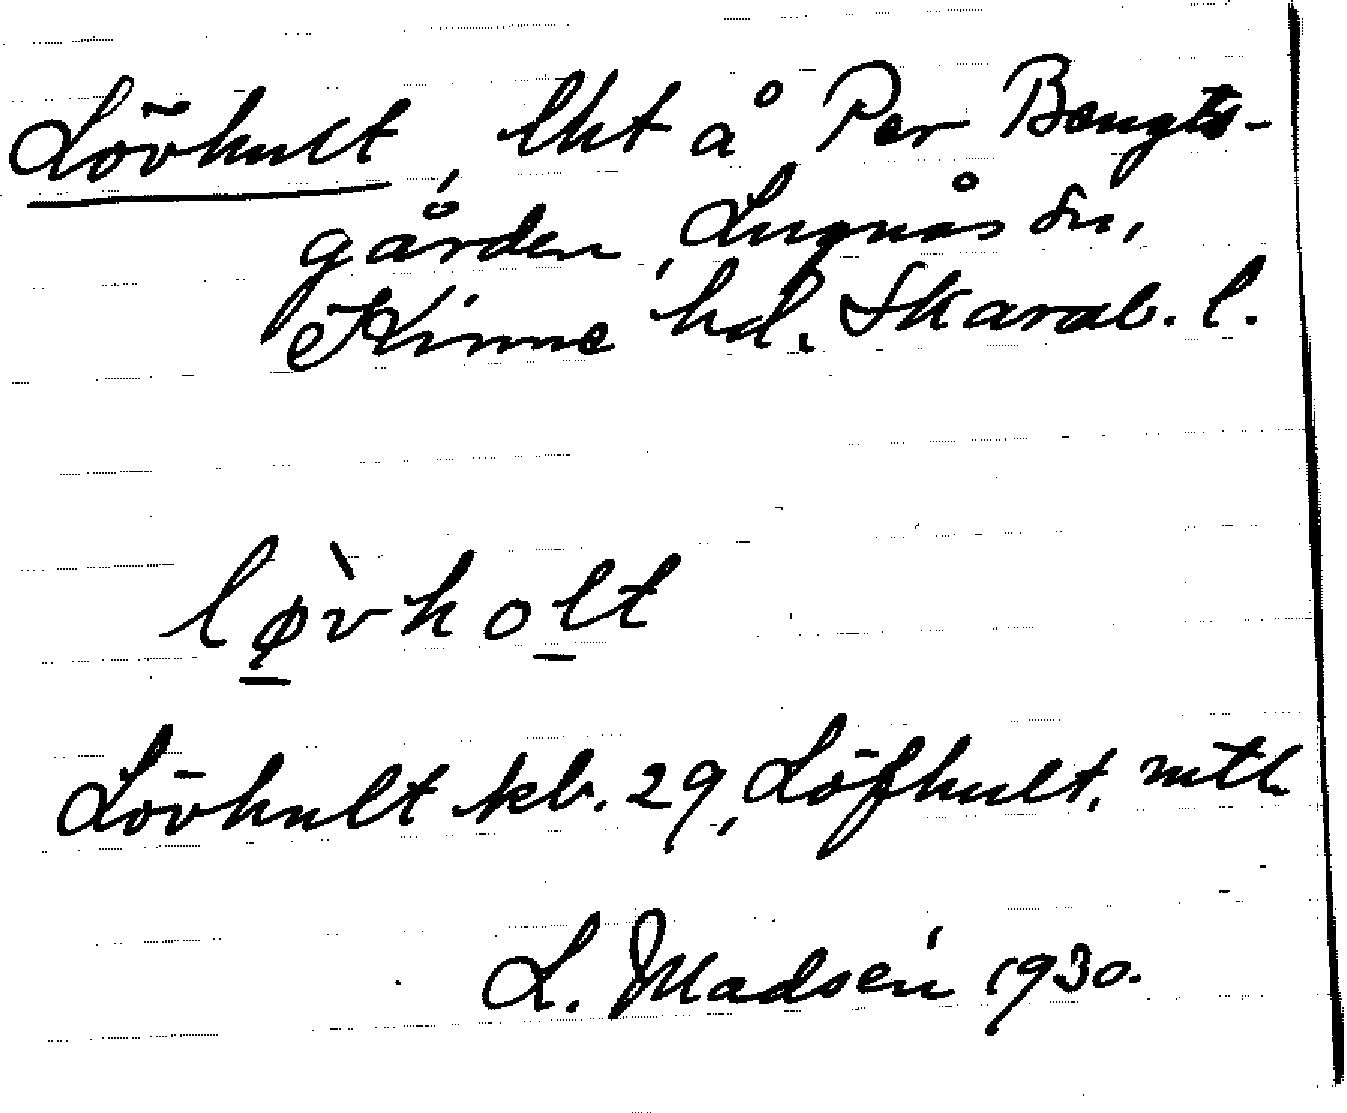 Lövhult, lht å Per Bengts-
gården, Lugnås sn,
Kinne hd. Skarab. l.
lø̀vholt
Lövhult kb. 29, Löfhult, mtl
L. Madsén 1930.